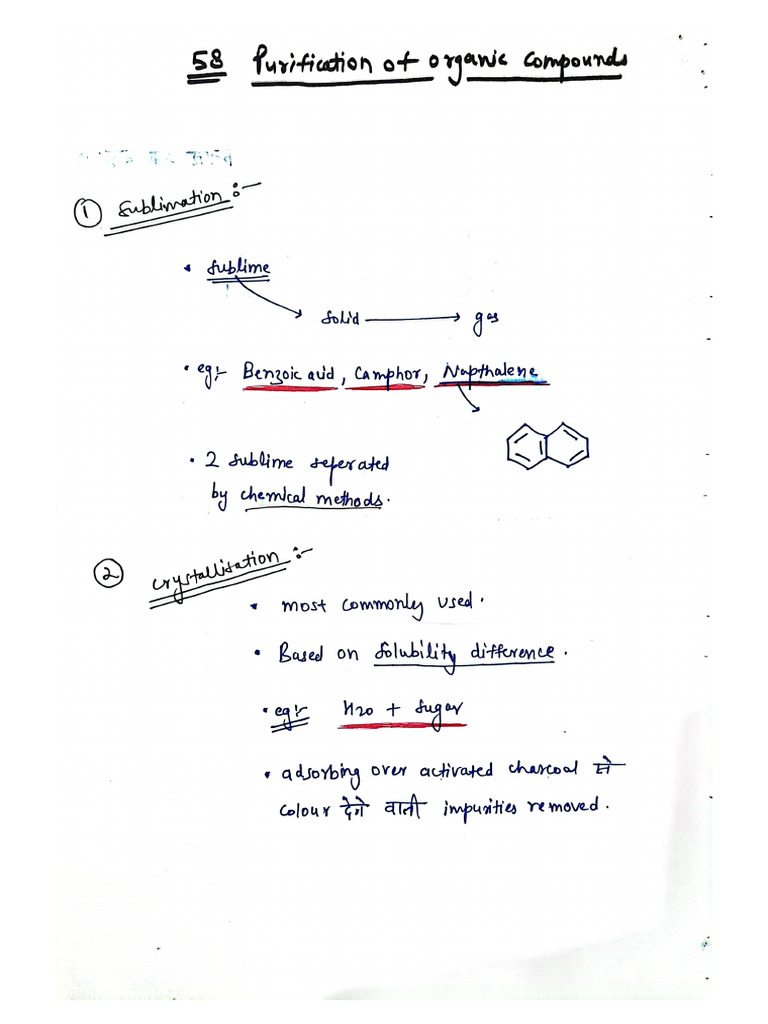 58 Purification of organic compounds
① Sublimation :-
• Sublime
Solid → gas
• eg:- Benzoic acid, Camphor, Napthalene
• 2 sublime seperated
by chemical methods.
② Crystallisation :-
• most commonly used.
• Based on solubility difference.
• eg:- H2O + Sugar
• adsorbing over activated charcoal से
colour देने वाली impurities removed.